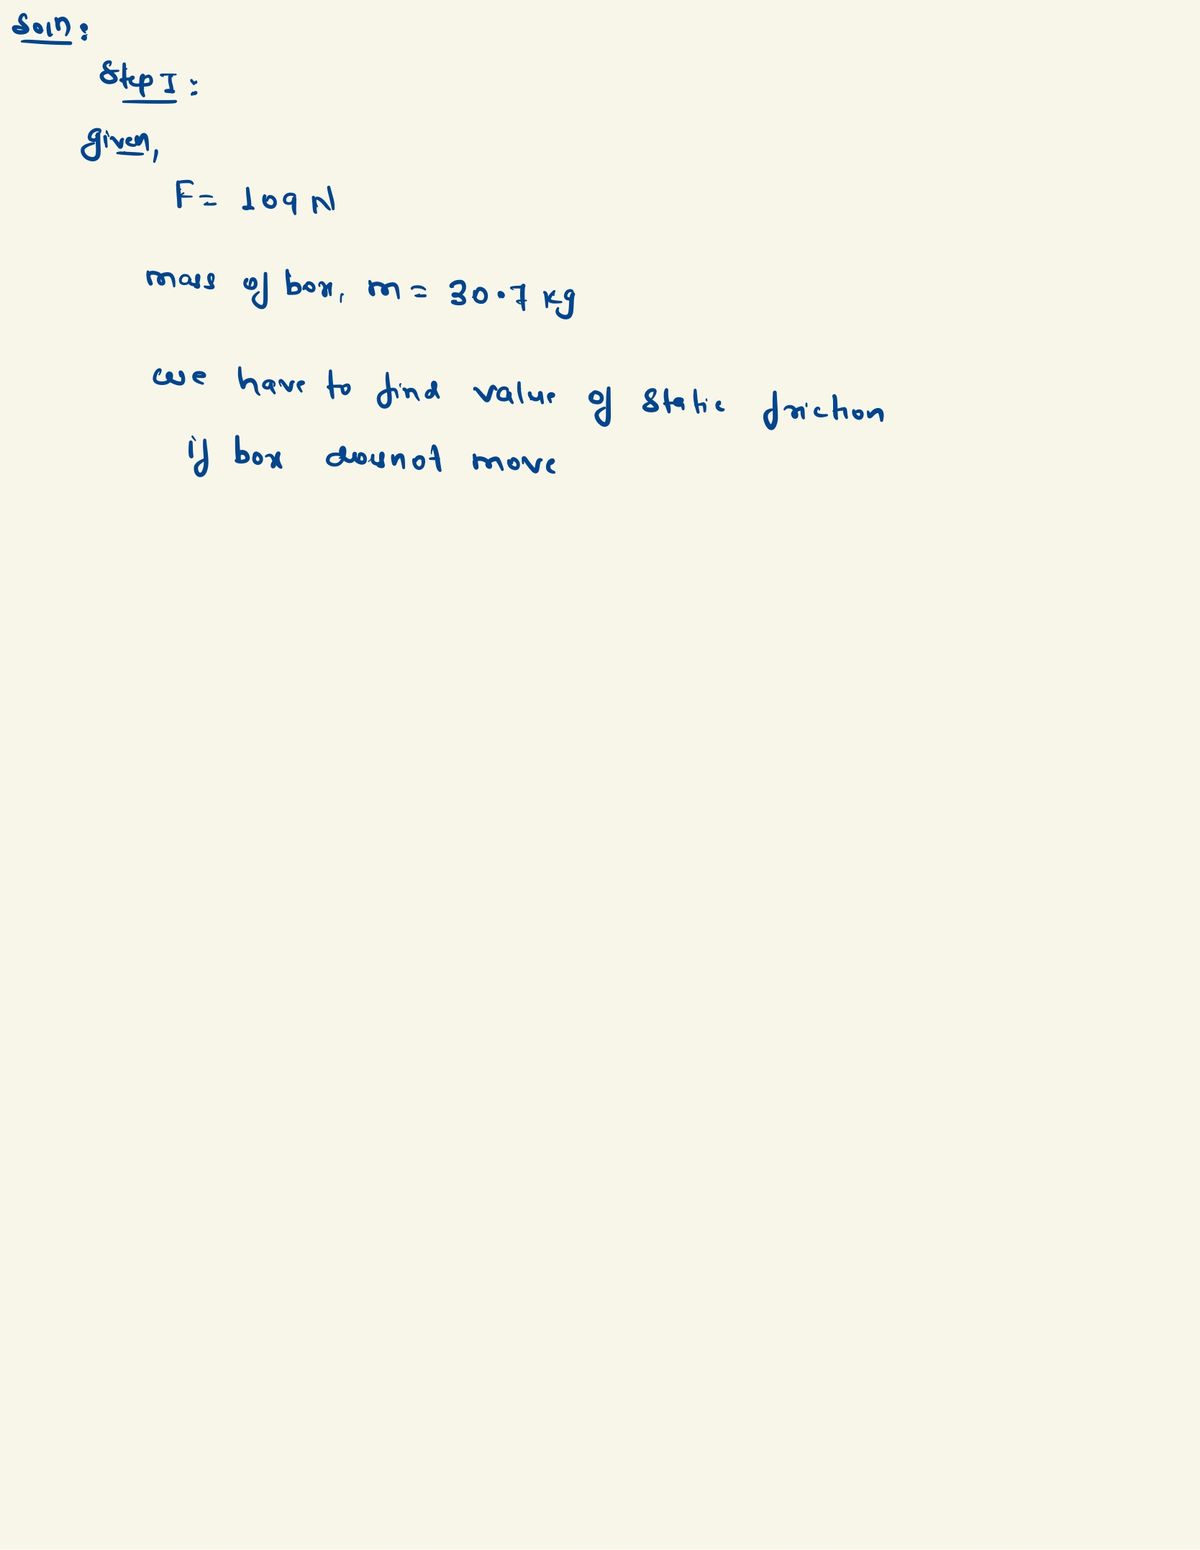 Soln:
Step I:
given,
F= 109 N
mass of box, m = 30.7 kg
we have to find value of static friction
if box doesnot move